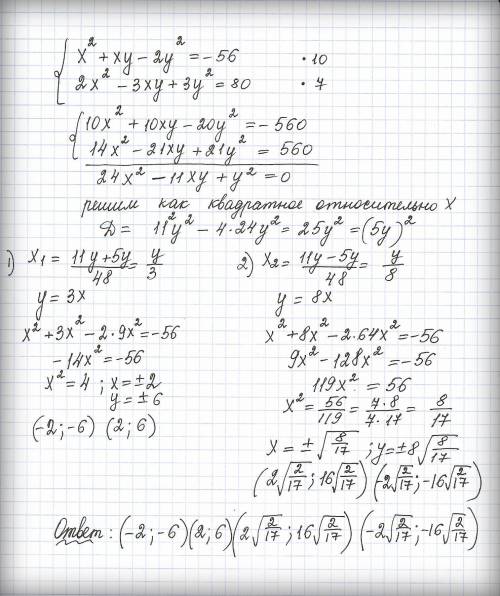 x² + xy − 2y² = −56 · 10
2x² − 3xy + 3y² = 80 · 7
10x² + 10xy − 20y² = −560
14x² − 21xy + 21y² = 560
24x² − 11xy + y² = 0
решим как квадратное относительно x
D = 11²y² − 4·24y² = 25y² = (5y)²
1) x₁ = (11y+5y)/48 = y/3
y = 3x
x² + 3x² − 2·9x² = −56
−14x² = −56
x² = 4 ; x = ±2
y = ±6
(−2;−6) (2; 6)
2) x₂ = (11y−5y)/48 = y/8
y = 8x
x² + 8x² − 2·64x² = −56
9x² − 128x² = −56
119x² = 56
x² = 56/119 = 7·8/7·17 = 8/17
x = ±√(8/17) ; y = ±8√(8/17)
(2√(2/17) ; 16√(2/17)) (−2√(2/17) ; −16√(2/17))
Ответ: (−2;−6)(2; 6)(2√(2/17) ; 16√(2/17)) (−2√(2/17) ; −16√(2/17))